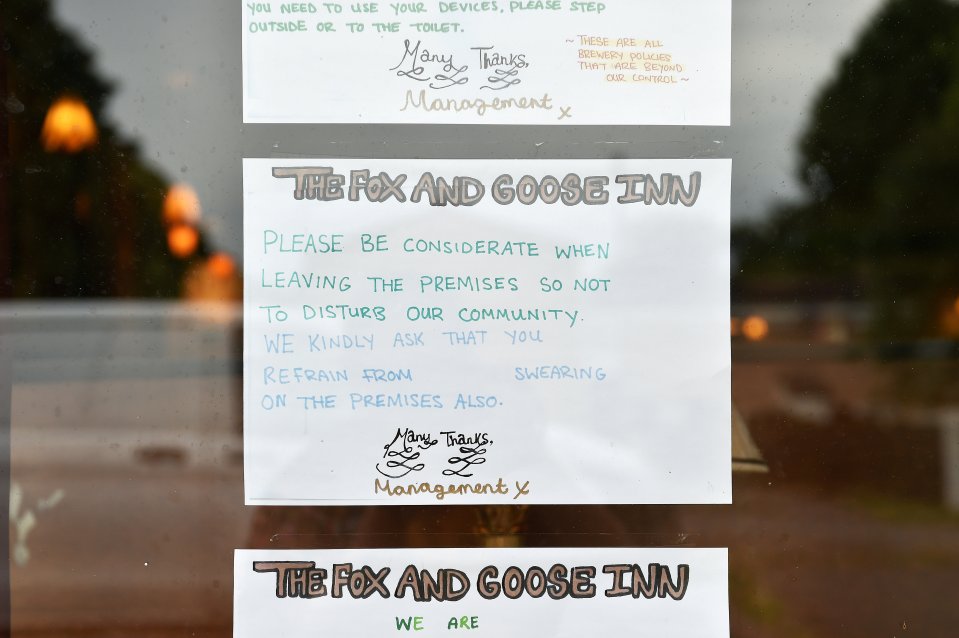 YOU NEED TO USE YOUR DEVICES, PLEASE STEP
OUTSIDE OR TO THE TOILET.
Many Thanks,
Management x
~ THESE ARE ALL
BREWERY POLICIES
THAT ARE BEYOND
OUR CONTROL ~
THE FOX AND GOOSE INN
PLEASE BE CONSIDERATE WHEN
LEAVING THE PREMISES SO NOT
TO DISTURB OUR COMMUNITY.
WE KINDLY ASK THAT YOU
REFRAIN FROM SWEARING
ON THE PREMISES ALSO.
Many Thanks,
Management x
THE FOX AND GOOSE INN
WE ARE